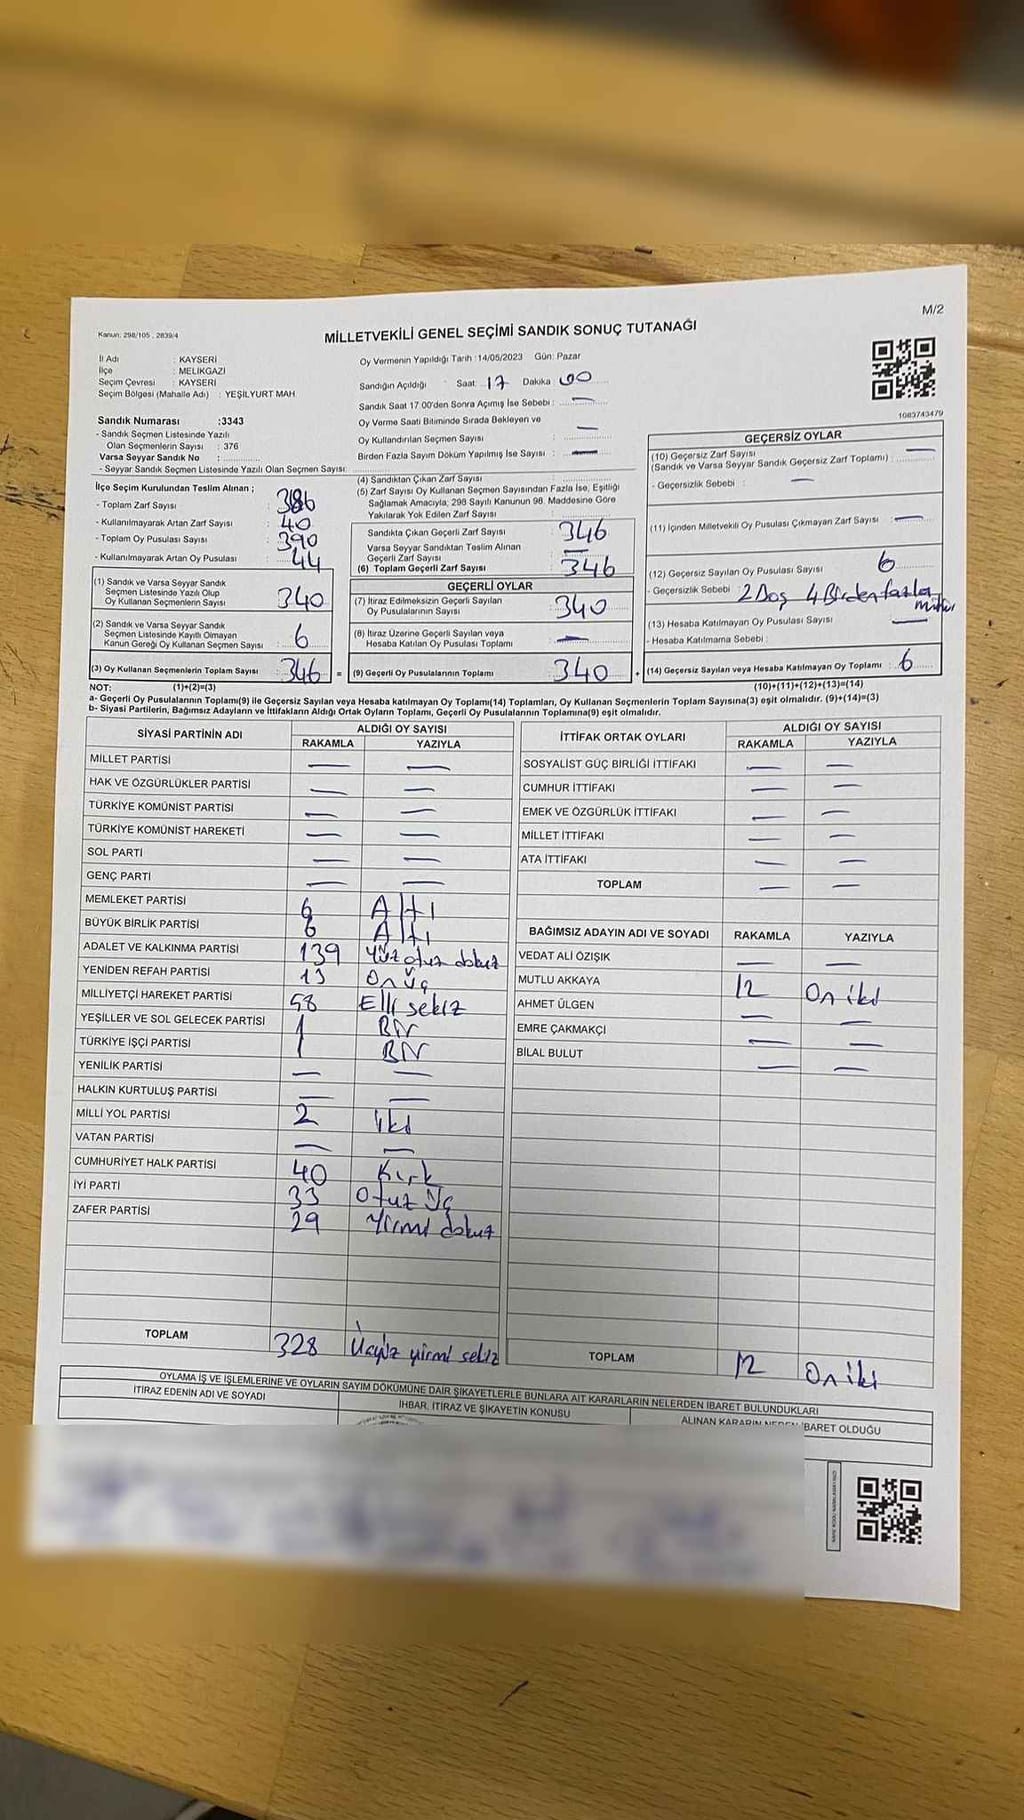 M/2
Kanun: 298/105 , 2839/4
MİLLETVEKİLİ GENEL SEÇİMİ SANDIK SONUÇ TUTANAĞI
İl Adı : KAYSERİ
İlçe : MELİKGAZİ
Seçim Çevresi : KAYSERİ
Seçim Bölgesi (Mahalle Adı) : YEŞİLYURT MAH
Sandık Numarası :3343
- Sandık Seçmen Listesinde Yazılı
Olan Seçmenlerin Sayısı : 376
Varsa Seyyar Sandık No :
- Seyyar Sandık Seçmen Listesinde Yazılı Olan Seçmen Sayısı:
Oy Vermenin Yapıldığı Tarih :14/05/2023 Gün: Pazar
Sandığın Açıldığı Saat 17 Dakika 00
Sandık Saat 17:00'den Sonra Açımış İse Sebebi : —
Oy Verme Saati Bitiminde Sırada Bekleyen ve
Oy Kullandırılan Seçmen Sayısı : —
Birden Fazla Sayım Döküm Yapılmış İse Sayısı : —
1083743479
İlçe Seçim Kurulundan Teslim Alınan ;
- Toplam Zarf Sayısı : 386
- Kullanılmayarak Artan Zarf Sayısı : 40
- Toplam Oy Pusulası Sayısı : 390
- Kullanılmayarak Artan Oy Pusulası : 44
(1) Sandık ve Varsa Seyyar Sandık
Seçmen Listesinde Yazılı Olup
Oy Kullanan Seçmenlerin Sayısı : 340
(2) Sandık ve Varsa Seyyar Sandık
Seçmen Listesinde Kayıtlı Olmayan
Kanun Gereği Oy Kullanan Seçmen Sayısı : 6
(3) Oy Kullanan Seçmenlerin Toplam Sayısı : 346
(4) Sandıktan Çıkan Zarf Sayısı :
(5) Zarf Sayısı Oy Kullanan Seçmen Sayısından Fazla İse, Eşitliği
Sağlamak Amacıyla, 298 Sayılı Kanunun 98. Maddesine Göre
Yakılarak Yok Edilen Zarf Sayısı :
Sandıkta Çıkan Geçerli Zarf Sayısı : 346
Varsa Seyyar Sandıktan Teslim Alınan
Geçerli Zarf Sayısı : —
(6) Toplam Geçerli Zarf Sayısı : 346
GEÇERLİ OYLAR
(7) İtiraz Edilmeksizin Geçerli Sayılan
Oy Pusulalarının Sayısı : 340
(8) İtiraz Üzerine Geçerli Sayılan veya
Hesaba Katılan Oy Pusulaları Toplamı : —
(9) Geçerli Oy Pusulalarının Toplamı : 340
GEÇERSİZ OYLAR
(10) Geçersiz Zarf Sayısı
(Sandık ve Varsa Seyyar Sandık Geçersiz Zarf Toplamı) : —
- Geçersizlik Sebebi : —
(11) İçinden Milletvekili Oy Pusulası Çıkmayan Zarf Sayısı : —
(12) Geçersiz Sayılan Oy Pusulası Sayısı : 6
- Geçersizlik Sebebi : 2 Boş 4 Birden fazla
mühür
(13) Hesaba Katılmayan Oy Pusulası Sayısı : —
- Hesaba Katılmama Sebebi :
(14) Geçersiz Sayılan veya Hesaba Katılmayan Oy Toplamı : 6
NOT: (1)+(2)=(3)
(10)+(11)+(12)+(13)=(14)
a- Geçerli Oy Pusulalarının Toplamı(9) ile Geçersiz Sayılan veya Hesaba katılmayan Oy Toplamı(14) Toplamları, Oy Kullanan Seçmenlerin Toplam Sayısına(3) eşit olmalıdır. (9)+(14)=(3)
b- Siyasi Partilerin, Bağımsız Adayların ve İttifakların Aldığı Ortak Oyların Toplamı, Geçerli Oy Pusulalarının Toplamına(9) eşit olmalıdır.
SİYASİ PARTİNİN ADI ALDIĞI OY SAYISI
RAKAMLA YAZIYLA
MİLLET PARTİSİ — —
HAK VE ÖZGÜRLÜKLER PARTİSİ — —
TÜRKİYE KOMÜNİST PARTİSİ — —
TÜRKİYE KOMÜNİST HAREKETİ — —
SOL PARTİ — —
GENÇ PARTİ — —
MEMLEKET PARTİSİ 6 Altı
BÜYÜK BİRLİK PARTİSİ 6 Altı
ADALET VE KALKINMA PARTİSİ 139 Yüz otuz dokuz
YENİDEN REFAH PARTİSİ 13 On üç
MİLLİYETÇİ HAREKET PARTİSİ 58 Elli sekiz
YEŞİLLER VE SOL GELECEK PARTİSİ 1 Bir
TÜRKİYE İŞÇİ PARTİSİ 1 Bir
YENİLİK PARTİSİ — —
HALKIN KURTULUŞ PARTİSİ — —
MİLLİ YOL PARTİSİ 2 iki
VATAN PARTİSİ — —
CUMHURİYET HALK PARTİSİ 40 Kırk
İYİ PARTİ 33 Otuz üç
ZAFER PARTİSİ 29 Yirmi dokuz
TOPLAM 328 Üçyüz yirmi sekiz
İTTİFAK ORTAK OYLARI ALDIĞI OY SAYISI
RAKAMLA YAZIYLA
SOSYALİST GÜÇ BİRLİĞİ İTTİFAKI — —
CUMHUR İTTİFAKI — —
EMEK VE ÖZGÜRLÜK İTTİFAKI — —
MİLLET İTTİFAKI — —
ATA İTTİFAKI — —
TOPLAM — —
BAĞIMSIZ ADAYIN ADI VE SOYADI RAKAMLA YAZIYLA
VEDAT ALİ ÖZIŞIK — —
MUTLU AKKAYA 12 On iki
AHMET ÜLGEN — —
EMRE ÇAKMAKÇİ — —
BİLAL BULUT — —
TOPLAM 12 On iki
OYLAMA İŞ VE İŞLEMLERİNE VE OYLARIN SAYIM DÖKÜMÜNE DAİR ŞİKAYETLERLE BUNLARA AİT KARARLARIN NELERDEN İBARET BULUNDUKLARI
İTİRAZ EDENİN ADI VE SOYADI İHBAR, İTİRAZ VE ŞİKAYETİN KONUSU ALINAN KARARIN NEDEN İBARET OLDUĞU